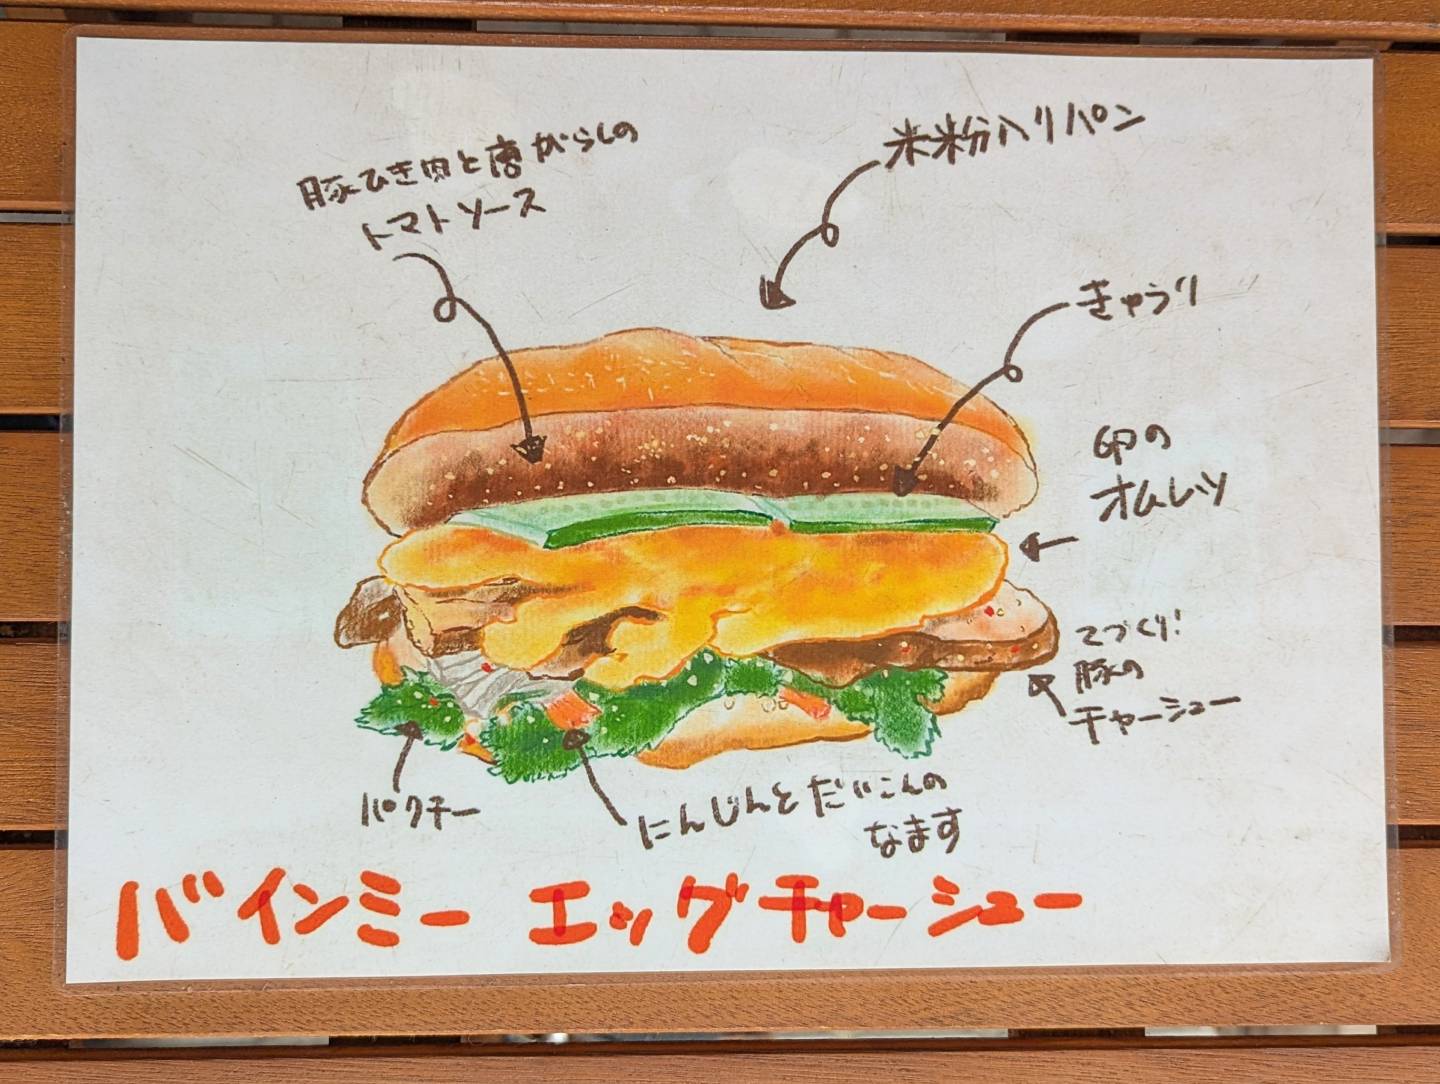 豚ひき肉と唐がらしの
トマトソース
米粉入りパン
きゅうり
卵の
オムレツ
てづくり!
豚の
チャーシュー
パクチー
にんじんとだいこんの
なます
バインミー エッグチャーシュー